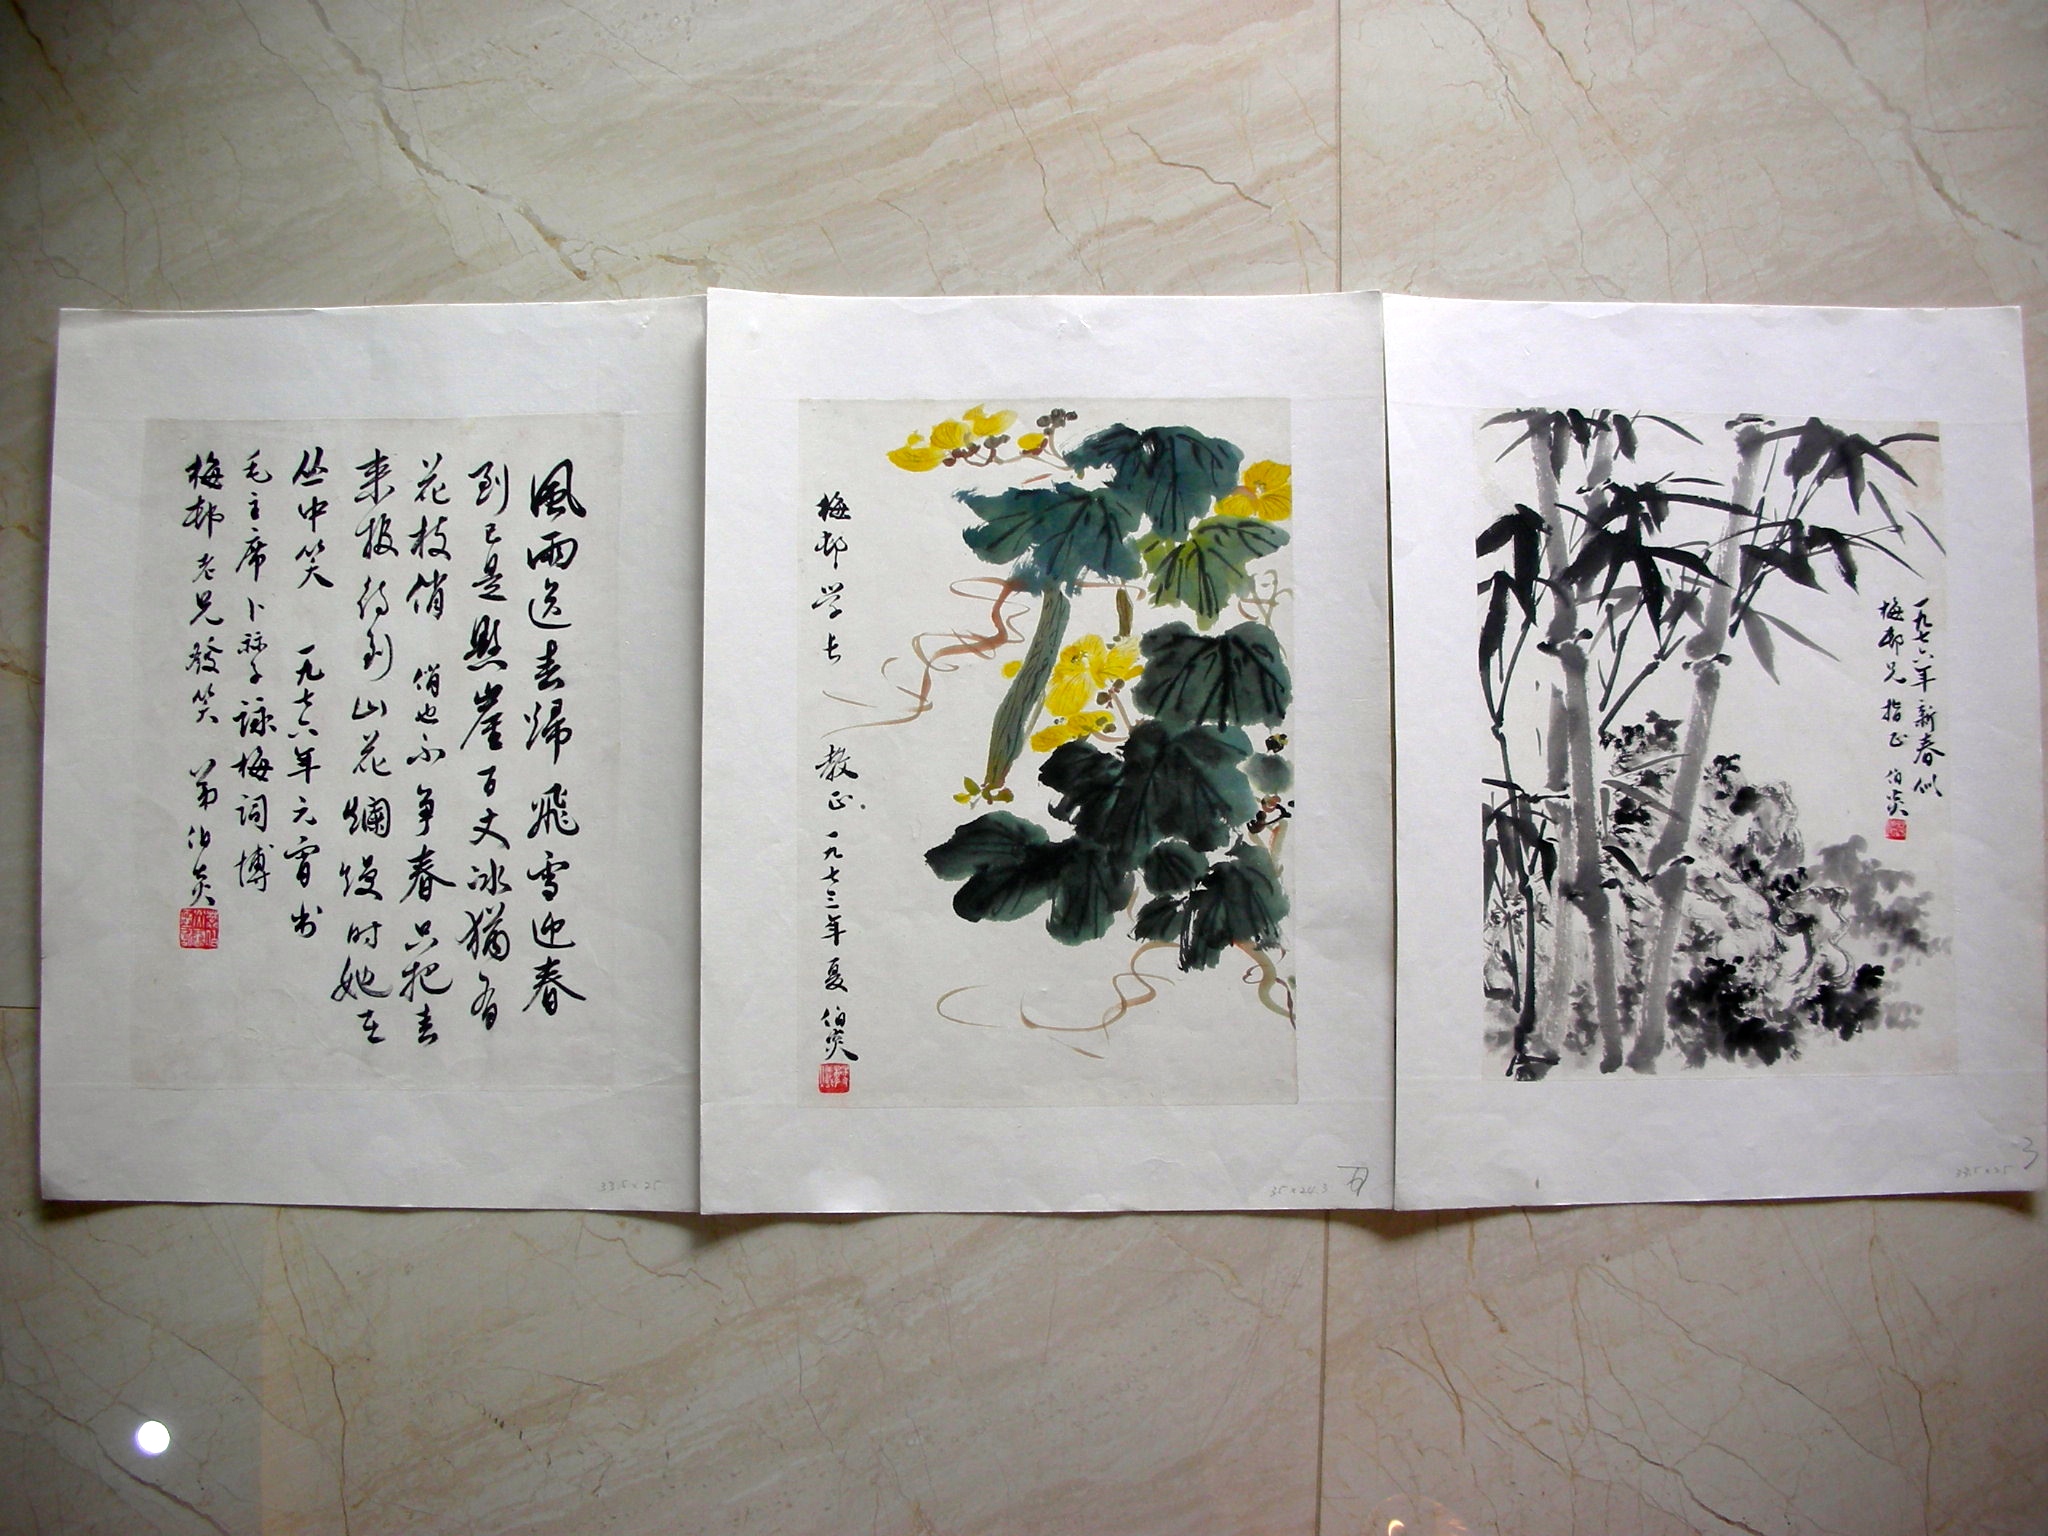 風雨送春歸飛雪迎春
到已是懸崖百丈冰猶有
花枝俏 俏也不争春只把春
来报待到山花爛熳时她在
丛中笑 一九七六年元宵书
毛主席卜祘子詠梅词博
梅邨老兄發笑 弟伯炎
33.5×25
梅邨学长 教正 一九七三年夏 伯炎
35×24.3
一九七六年新春似
梅邨兄指正 伯炎
33.5×25
3